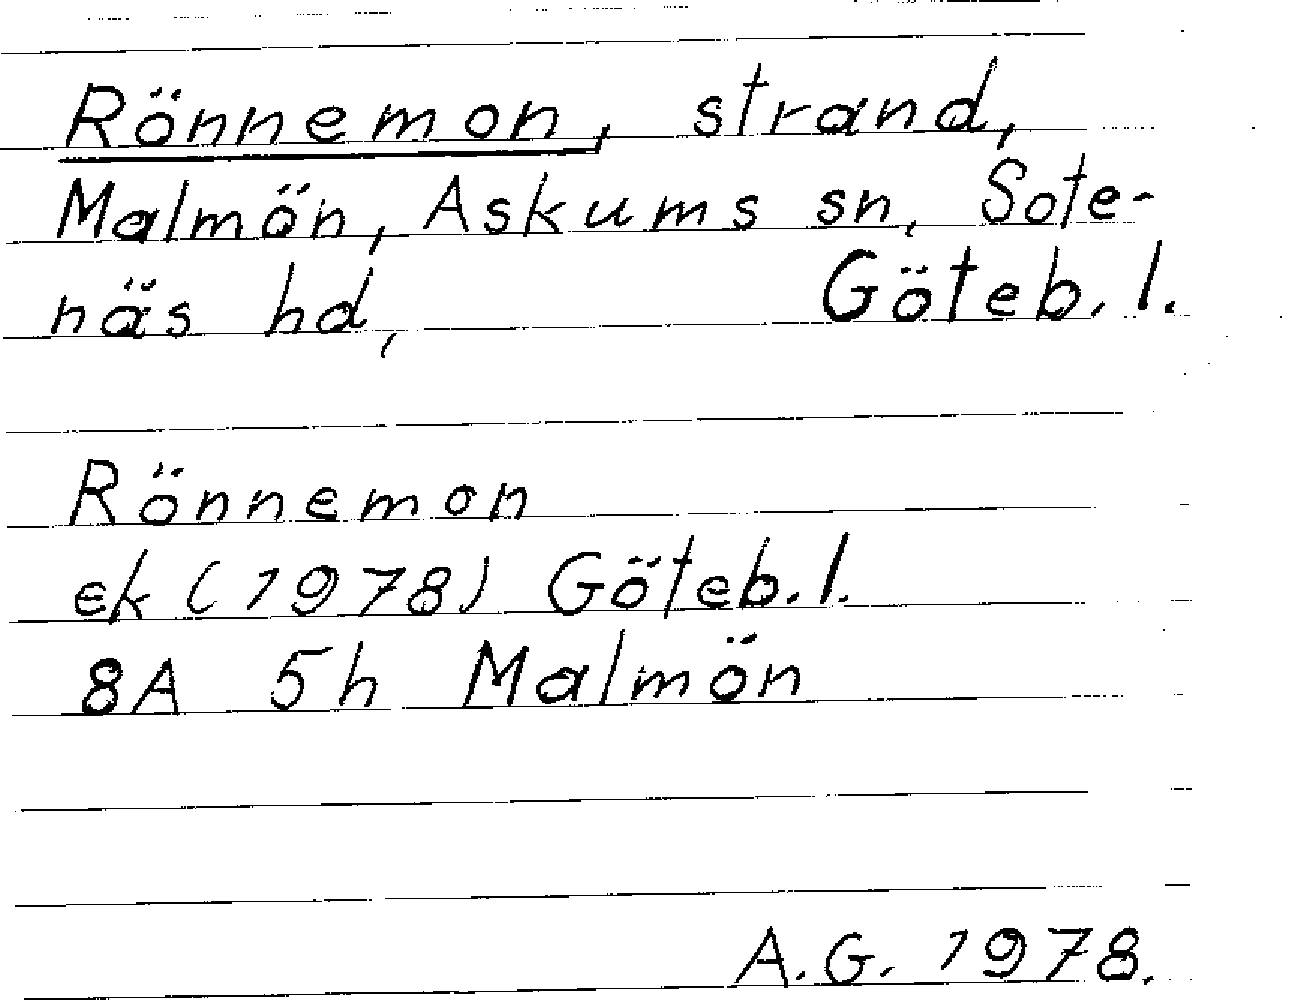 Rönnemon, strand,
Malmön, Askums sn, Sote-
näs hd, Göteb. l.
Rönnemon
ek (1978) Göteb. l.
8A 5h Malmön
A. G. 1978.